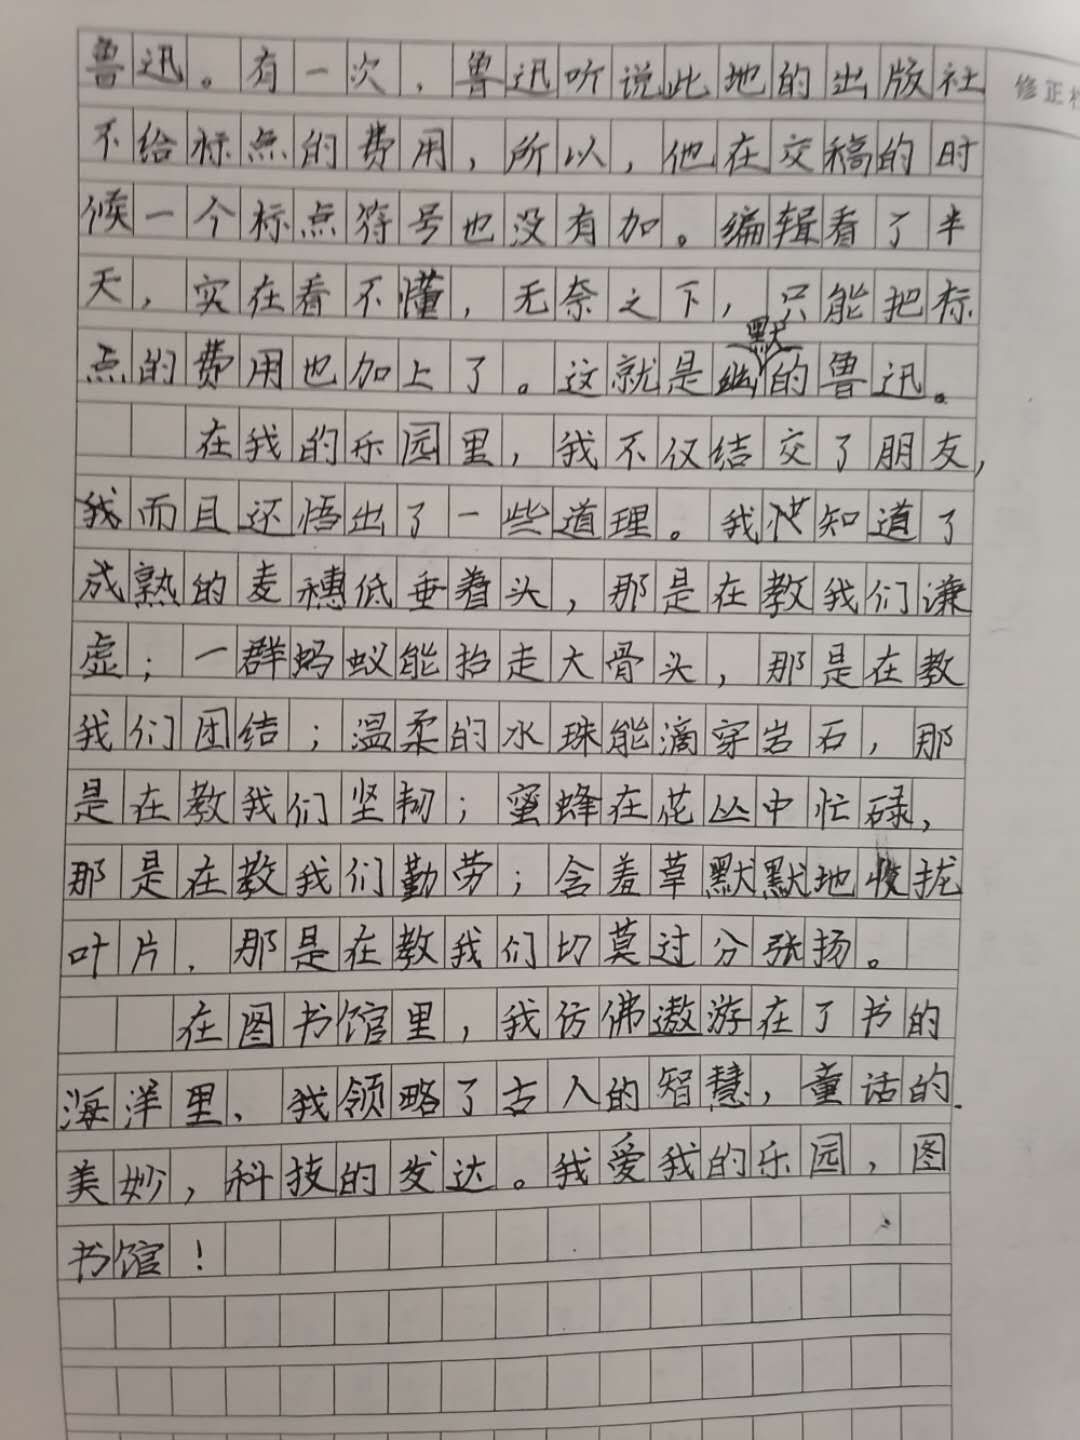 鲁迅。有一次，鲁迅听说此地的出版社
修正栏
不给标点的费用，所以，他在交稿的时
候一个标点符号也没有加。编辑看了半
天，实在看不懂，无奈之下，只能把标
点的费用也加上了。这就是幽默的鲁迅。
在我的乐园里，我不仅结交了朋友，
我而且还悟出了一些道理。我知道了
成熟的麦穗低垂着头，那是在教我们谦
虚；一群蚂蚁能抬走大骨头，那是在教
我们团结；温柔的水珠能滴穿岩石，那
是在教我们坚韧；蜜蜂在花丛中忙碌，
那是在教我们勤劳；含羞草默默地收拢
叶片，那是在教我们切莫过分张扬。
在图书馆里，我仿佛遨游在了书的
海洋里、我领略了古人的智慧，童话的
美妙，科技的发达。我爱我的乐园，图
书馆！